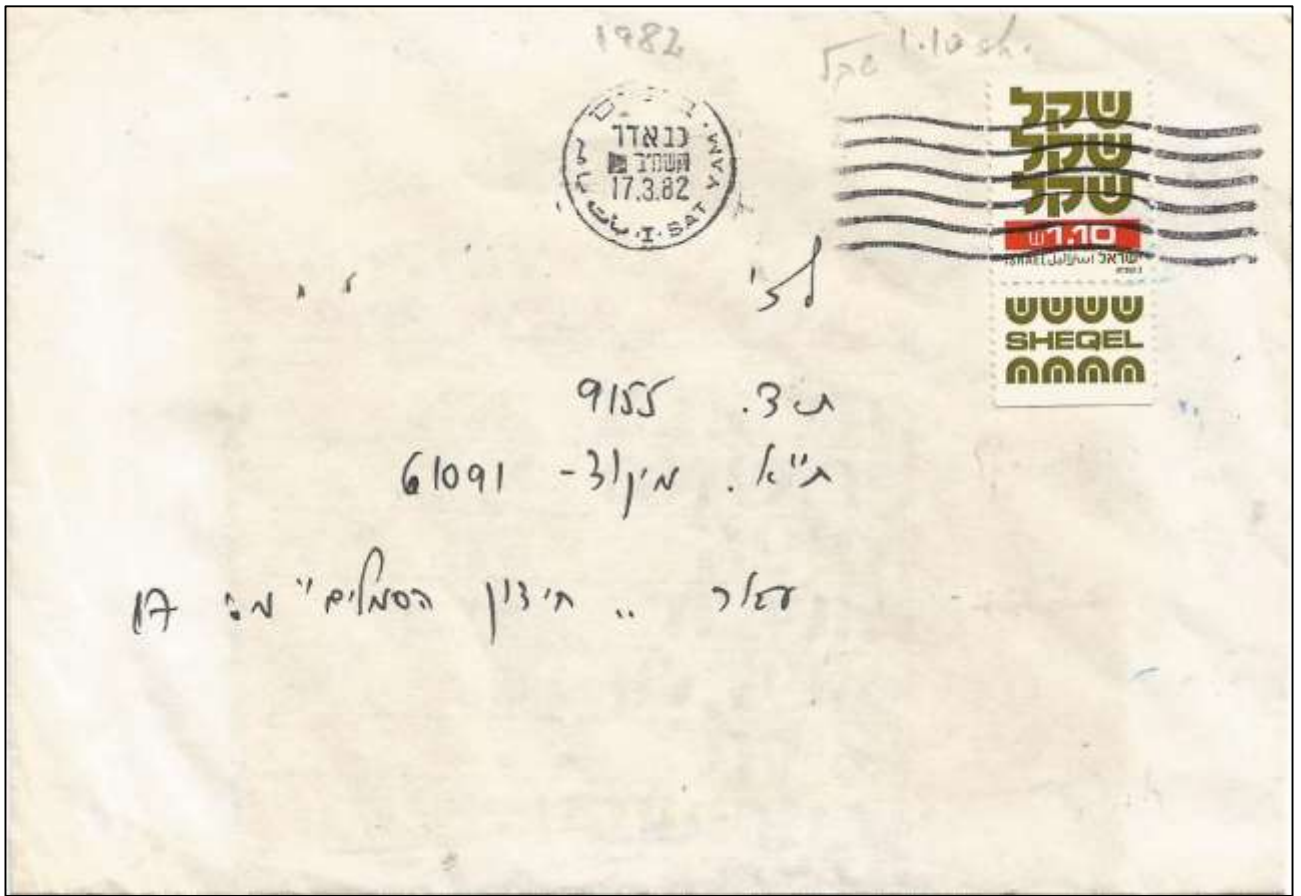 1982
1.10 שקל
בת ים
כב אדר
תשמ"ב
17.3.82
BAT YAM
שקל
שקל
שקל
1.10
ישראל ISRAEL اسرائيل
SHEQEL
ת.ד. 9155
ת"א. מיקוד- 61091
עבור " חידון הסמלים " מס' 17